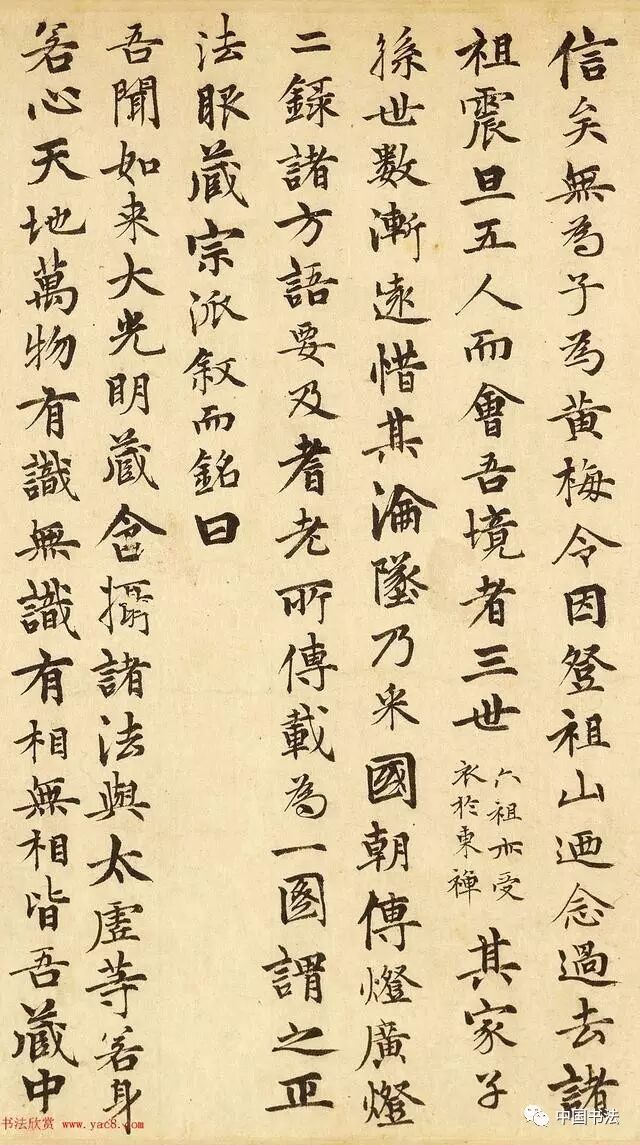 信矣無為子為黃梅令因登祖山迺念過去諸
祖震旦五人而會吾境者三世六祖亦受衣於東禪其家子
孫世数漸遠惜其淪墜乃采國朝傳燈廣燈
二録諸方語要及耆老所傳載為一圖謂之正
法眼藏宗派敘而銘曰
吾聞如来大光明藏含攝諸法與太虛等若身
若心天地萬物有識無識有相無相皆吾藏中
书法欣赏 www.yac8.com
中国书法